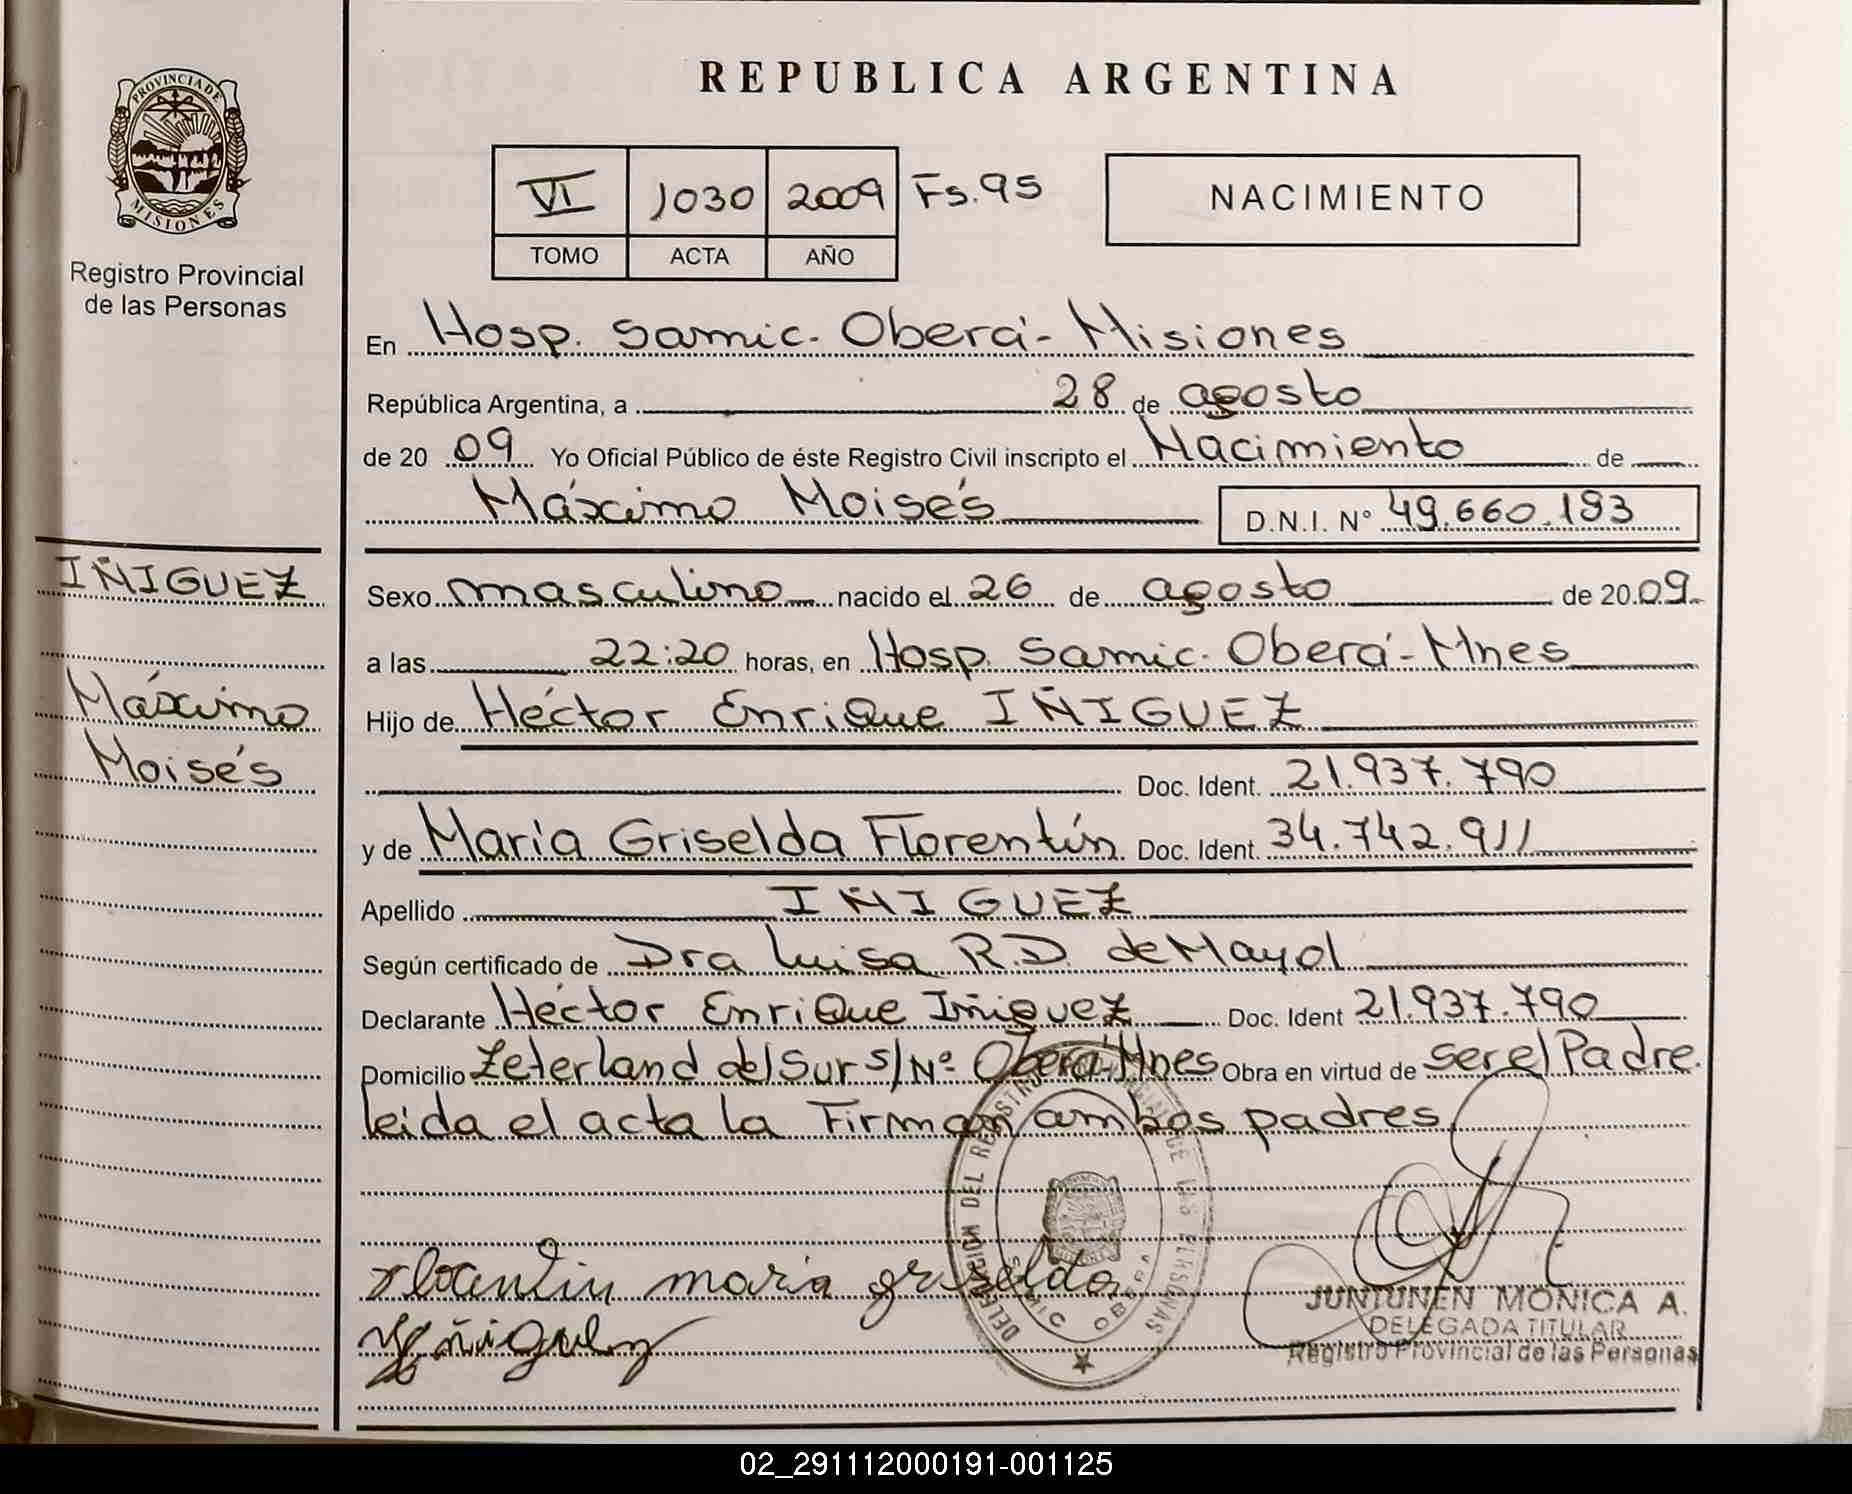 REPUBLICA ARGENTINA
PROVINCIA DE
MISIONES
Registro Provincial
de las Personas
VI 1030 2009 Fs. 95
TOMO ACTA AÑO
NACIMIENTO
En Hosp. Samic. Oberá - Misiones
República Argentina, a 28 de agosto
de 20 09 Yo Oficial Público de éste Registro Civil inscripto el Nacimiento de
Máximo Moisés D.N.I. N° 49.660.193
IÑIGUEZ
Máximo
Moisés
Sexo masculino nacido el 26 de agosto de 20 09
a las 22:20 horas, en Hosp. Samic. Oberá - Mnes
Hijo de Héctor Enrique IÑIGUEZ
Doc. Ident. 21.937.790
y de María Griselda Florentín Doc. Ident. 34.742.911
Apellido IÑIGUEZ
Según certificado de Dra Luisa R.D. de Mayol
Declarante Héctor Enrique Iñiguez Doc. Ident 21.937.790
Domicilio Zeterland del Sur s/Nº Oberá-Mnes Obra en virtud de ser el Padre.
leida el acta la Firman ambos padres
florentin maria griselda
Iñiguez
DELEGACION DEL REGISTRO PROVINCIAL DE LAS PERSONAS
OBERA
JUNTUNEN MONICA A.
DELEGADA TITULAR
Registro Provincial de las Personas
02_291112000191-001125